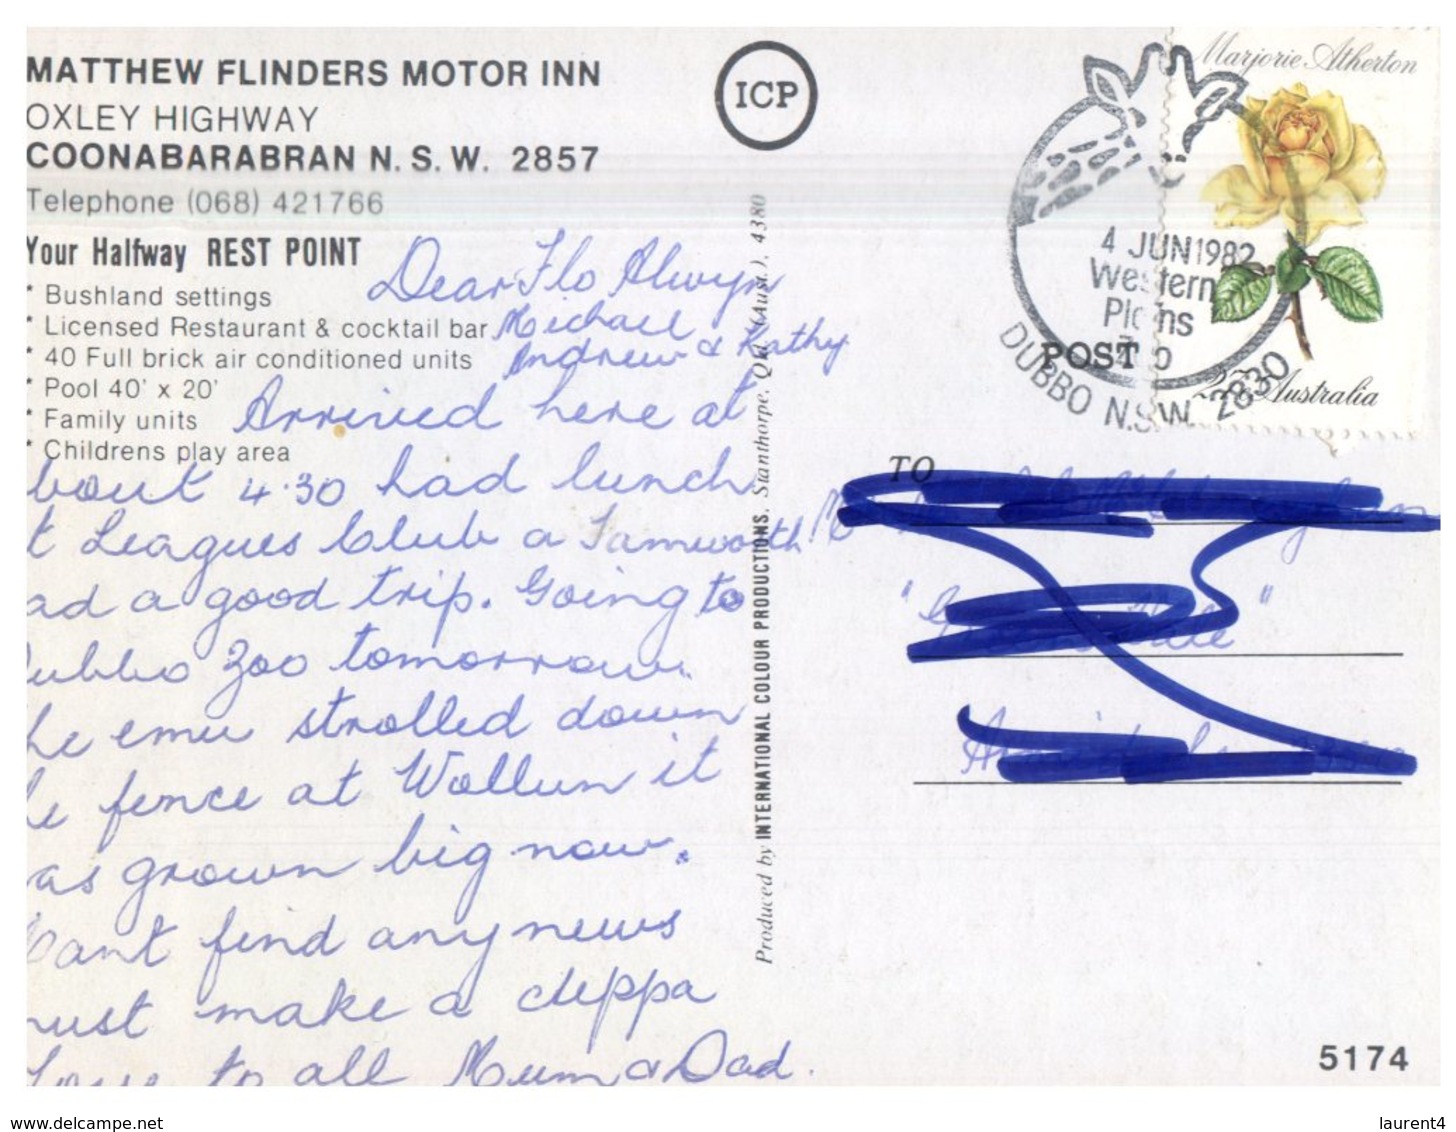 MATTHEW FLINDERS MOTOR INN
OXLEY HIGHWAY
COONABARABRAN N. S. W. 2857
Telephone (068) 421766
Your Halfway REST POINT
* Bushland settings
* Licensed Restaurant & cocktail bar
* 40 Full brick air conditioned units
* Pool 40' x 20'
* Family units
* Childrens play area
Dear Flo Alwyn
Michael
Andrew & Kathy
Arrived here at
bout 4.30 had lunch
t Leagues Club a Tamworth
ad a good trip. Going to
Dubbo Zoo tomorrow.
he emu strolled down
he fence at Wollun it
as grown big now.
Cant find any news
must make a cuppa
Love to all Mum & Dad.
ICP
Produced by INTERNATIONAL COLOUR PRODUCTIONS, Stanthorpe, Qld. (Aust.), 4380
Marjorie Atherton
27c Australia
4 JUN 1982
Western
Plains
Zoo
DUBBO N.S.W. 2830
POST
TO
5174
www.delcampe.net
laurent4